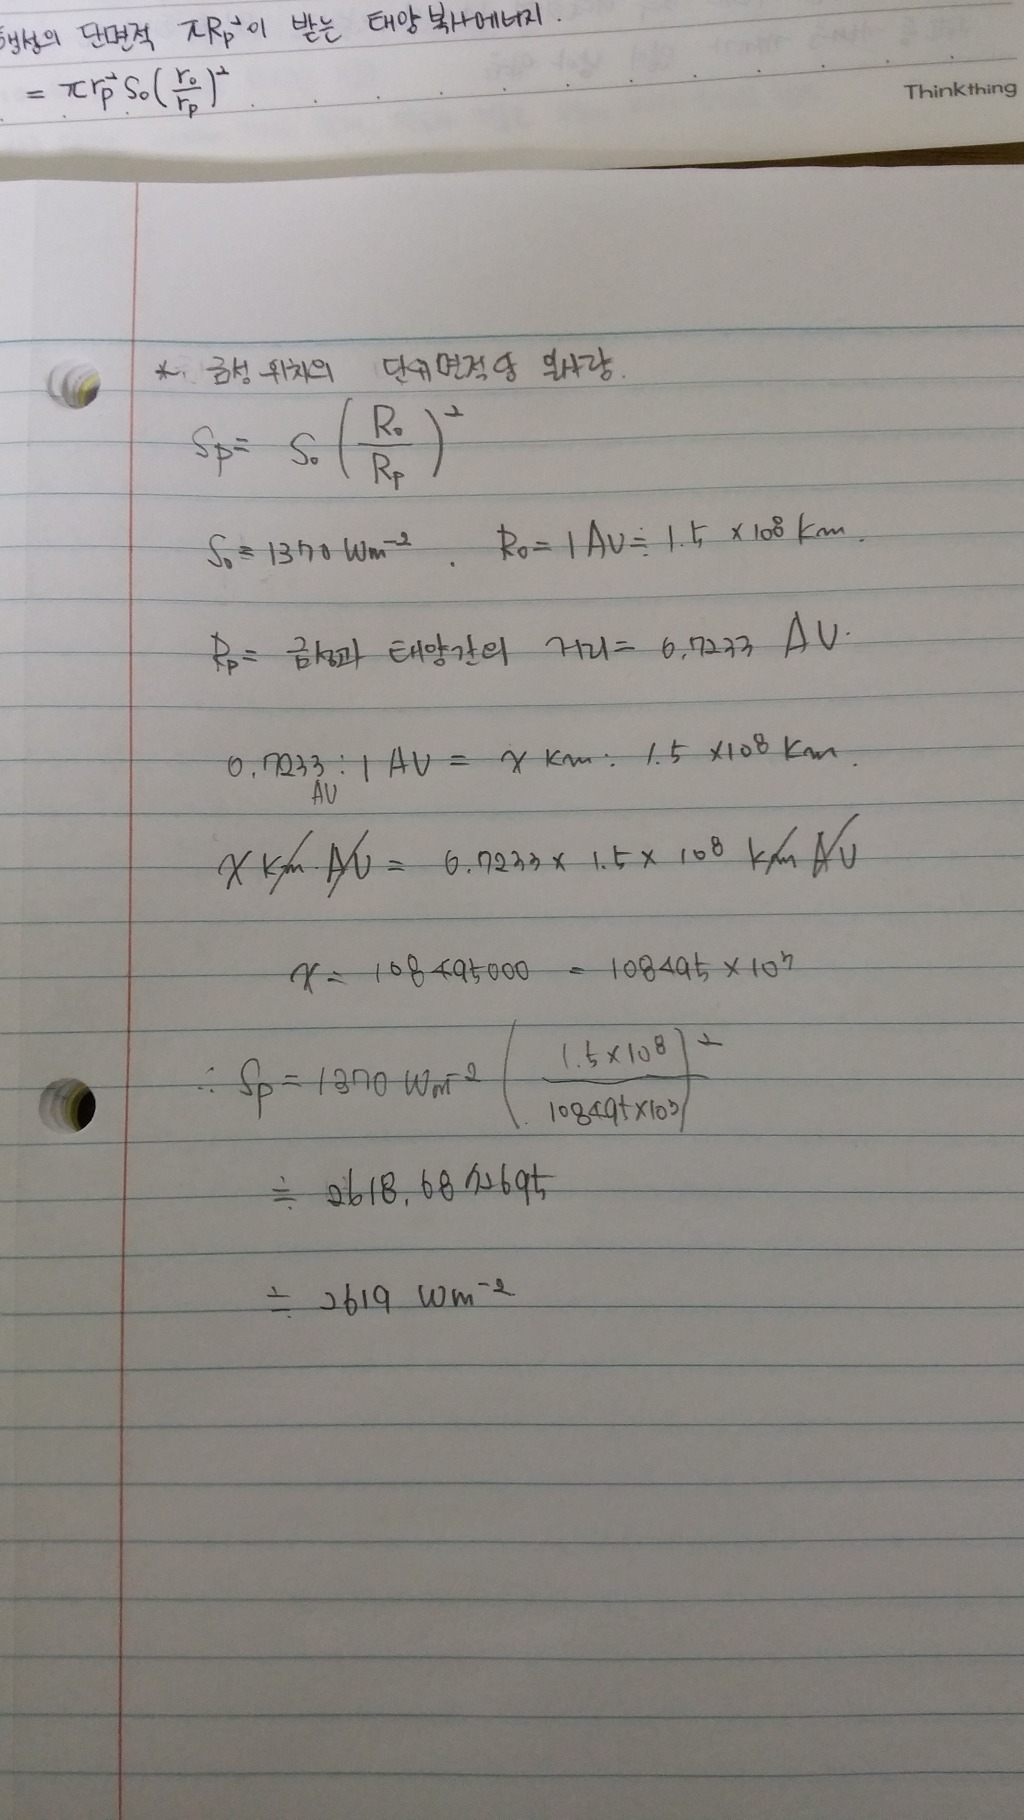 행성의 단면적 πRp²이 받는 태양복사에너지.
= πrp² S₀(r₀/rp)²
Thinkthing
* 금성 위치의 단위면적당 일사량.
Sp = S₀ (R₀/Rp)²
S₀ = 1370 Wm⁻². R₀ = 1 AU ≒ 1.5 × 10⁸ km.
Rp = 금성과 태양간의 거리 = 0.7233 AU.
0.7233 AU : 1 AU = x km : 1.5 × 10⁸ km.
x km·AU = 0.7233 × 1.5 × 10⁸ km AU
x = 108495000 = 108495 × 10³
∴ Sp = 1370 Wm⁻² (1.5×10⁸ / 108495×10³)²
≒ 2618.68
≒ 2619 Wm⁻²